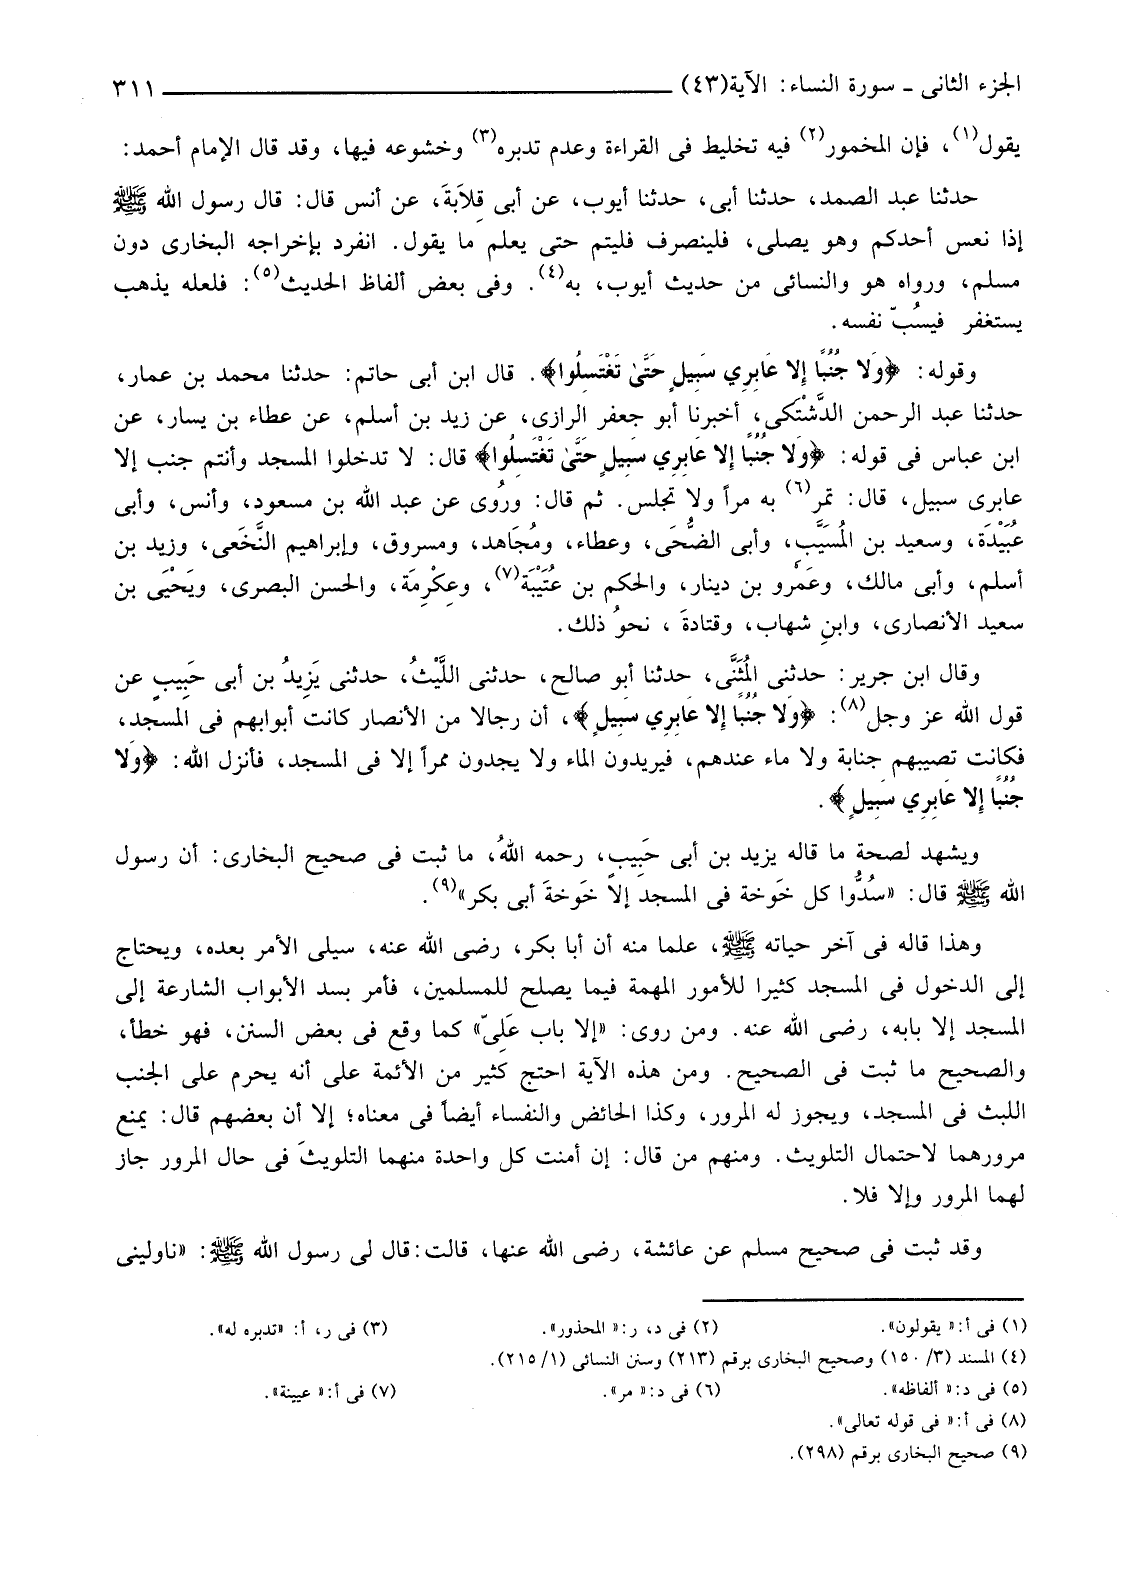 الجزء الثانى ـ سورة النساء: الآية(٤٣) ٣١١
يقول(١)، فإن المخمور(٢) فيه تخليط فى القراءة وعدم تدبره(٣) وخشوعه فيها، وقد قال الإمام أحمد:
حدثنا عبد الصمد، حدثنا أبى، حدثنا أيوب، عن أبى قِلابَةَ، عن أنس قال: قال رسول الله ﷺ
إذا نعس أحدكم وهو يصلى، فلينصرف فليتم حتى يعلم ما يقول. انفرد بإخراجه البخارى دون
مسلم، ورواه هو والنسائى من حديث أيوب، به(٤). وفى بعض ألفاظ الحديث(٥): فلعله يذهب
يستغفر فيسُبّ نفسه.
وقوله: ﴿وَلا جُنُبًا إِلا عَابِرِي سَبِيلٍ حَتَّىٰ تَغْتَسِلُوا﴾. قال ابن أبى حاتم: حدثنا محمد بن عمار،
حدثنا عبد الرحمن الدَّشْتَكى، أخبرنا أبو جعفر الرازى، عن زيد بن أسلم، عن عطاء بن يسار، عن
ابن عباس فى قوله: ﴿وَلا جُنُبًا إِلا عَابِرِي سَبِيلٍ حَتَّىٰ تَغْتَسِلُوا﴾ قال: لا تدخلوا المسجد وأنتم جنب إلا
عابرى سبيل، قال: تمر(٦) به مراً ولا تجلس. ثم قال: ورُوى عن عبد الله بن مسعود، وأنس، وأبى
عُبَيْدَة، وسعيد بن المُسَيَّب، وأبى الضُّحَى، وعطاء، ومُجَاهد، ومسروق، وإبراهيم النَّخَعى، وزيد بن
أسلم، وأبى مالك، وعَمْرو بن دينار، والحكم بن عُتَيْبَة(٧)، وعِكْرِمَة، والحسن البصرى، ويَحْيَى بن
سعيد الأنصارى، وابنِ شهاب، وقتادةَ ، نحوُ ذلك.
وقال ابن جرير: حدثنى المُثَنَّى، حدثنا أبو صالح، حدثنى اللَّيْثُ، حدثنى يَزِيدُ بن أبى حَبِيبٍ عن
قول الله عز وجل(٨): ﴿وَلا جُنُبًا إِلا عَابِرِي سَبِيلٍ﴾، أن رجالا من الأنصار كانت أبوابهم فى المسجد،
فكانت تصيبهم جنابة ولا ماء عندهم، فيريدون الماء ولا يجدون ممراً إلا فى المسجد، فأنزل الله: ﴿وَلا
جُنُبًا إِلا عَابِرِي سَبِيلٍ﴾.
ويشهد لصحة ما قاله يزيد بن أبى حَبِيبٍ، رحمه اللهُ، ما ثبت فى صحيح البخارى: أن رسول
الله ﷺ قال: «سُدُّوا كل خَوخة فى المسجد إلا خَوخةَ أبى بكر»(٩).
وهذا قاله فى آخر حياته ﷺ، علما منه أن أبا بكر، رضى الله عنه، سيلى الأمر بعده، ويحتاج
إلى الدخول فى المسجد كثيرا للأمور المهمة فيما يصلح للمسلمين، فأمر بسد الأبواب الشارعة إلى
المسجد إلا بابه، رضى الله عنه. ومن روى: «إلا باب عَلِىّ» كما وقع فى بعض السنن، فهو خطأ،
والصحيح ما ثبت فى الصحيح. ومن هذه الآية احتج كثير من الأئمة على أنه يحرم على الجنب
اللبث فى المسجد، ويجوز له المرور، وكذا الحائض والنفساء أيضاً فى معناه؛ إلا أن بعضهم قال: يمنع
مرورهما لاحتمال التلويث. ومنهم من قال: إن أمنت كل واحدة منهما التلويثَ فى حال المرور جاز
لهما المرور وإلا فلا.
وقد ثبت فى صحيح مسلم عن عائشة، رضى الله عنها، قالت: قال لى رسول الله ﷺ: «ناولينى
(١) فى أ: «يقولون». (٢) فى د، ر: «المحذور». (٣) فى ر، أ: «تدبره له».
(٤) المسند (٣/ ١٥٠) وصحيح البخارى برقم (٢١٣) وسنن النسائى (١/ ٢١٥).
(٥) فى د: «ألفاظه». (٦) فى د: «مر». (٧) فى أ: «عيينة».
(٨) فى أ: «فى قوله تعالى».
(٩) صحيح البخارى برقم (٢٩٨).